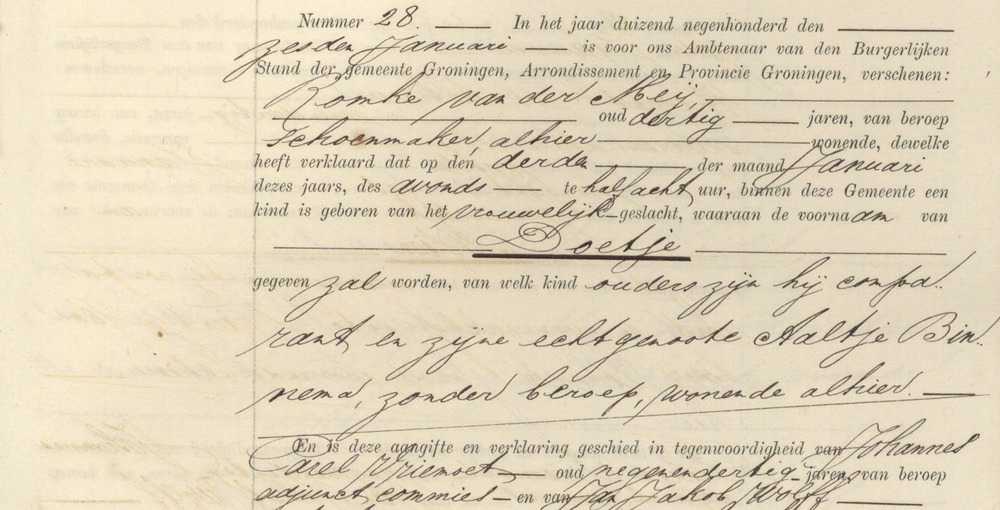 Nummer 28. In het jaar duizend negenhonderd den
zesden Januari is voor ons Ambtenaar van den Burgerlijken
Stand der gemeente Groningen, Arrondissement en Provincie Groningen, verschenen:
Romke van der Meij,
oud dertig jaren, van beroep
schoenmaker, alhier wonende, dewelke
heeft verklaard dat op den derden der maand Januari
dezes jaars, des avonds te half acht uur, binnen deze Gemeente een
kind is geboren van het vrouwelijk geslacht, waaraan de voornaam van
Doetje
gegeven zal worden, van welk kind ouders zijn hij compa..
rant en zijne echtgenoote Aaltje Bin..
nema, zonder beroep, wonende alhier.
En is deze aangifte en verklaring geschied in tegenwoordigheid van Johannes
Carel Vriemoet oud negenendertig jaren, van beroep
adjunct commies en van Jan Jakob Wolff